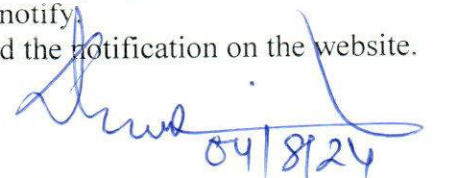 notify.
d the notification on the website.
04/8/24